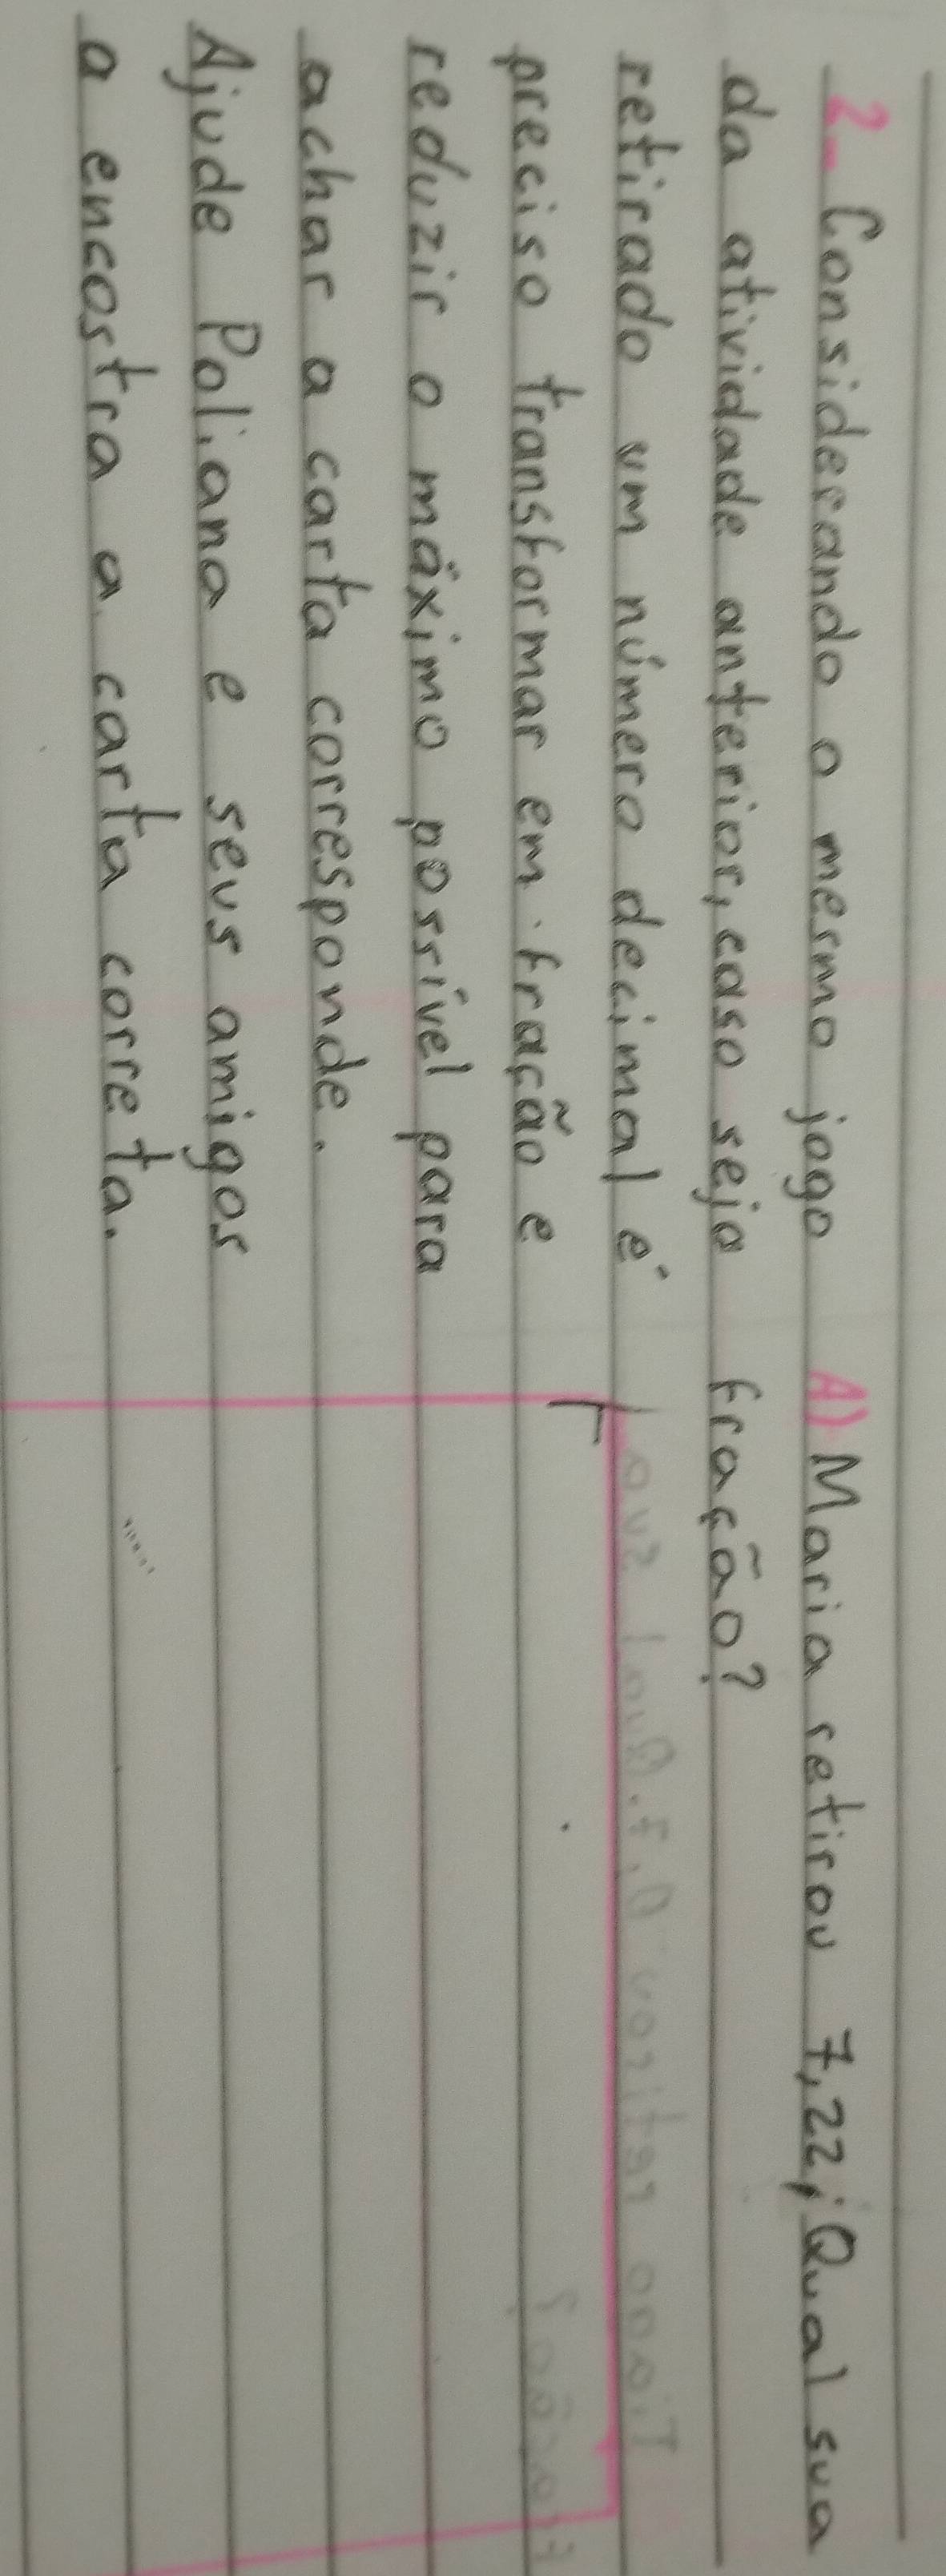 2- Considerando o mesmo jogo
da atividade anterior, caso seja
retirado um número decimal é
preciso transformar em fração e
reduzir o máximo possível para
achar a carta corresponde.
Ajude Poliana e seus amigos
a encostra a carta correta.
A) Maria retirou 7,22; Qual sua
fração?